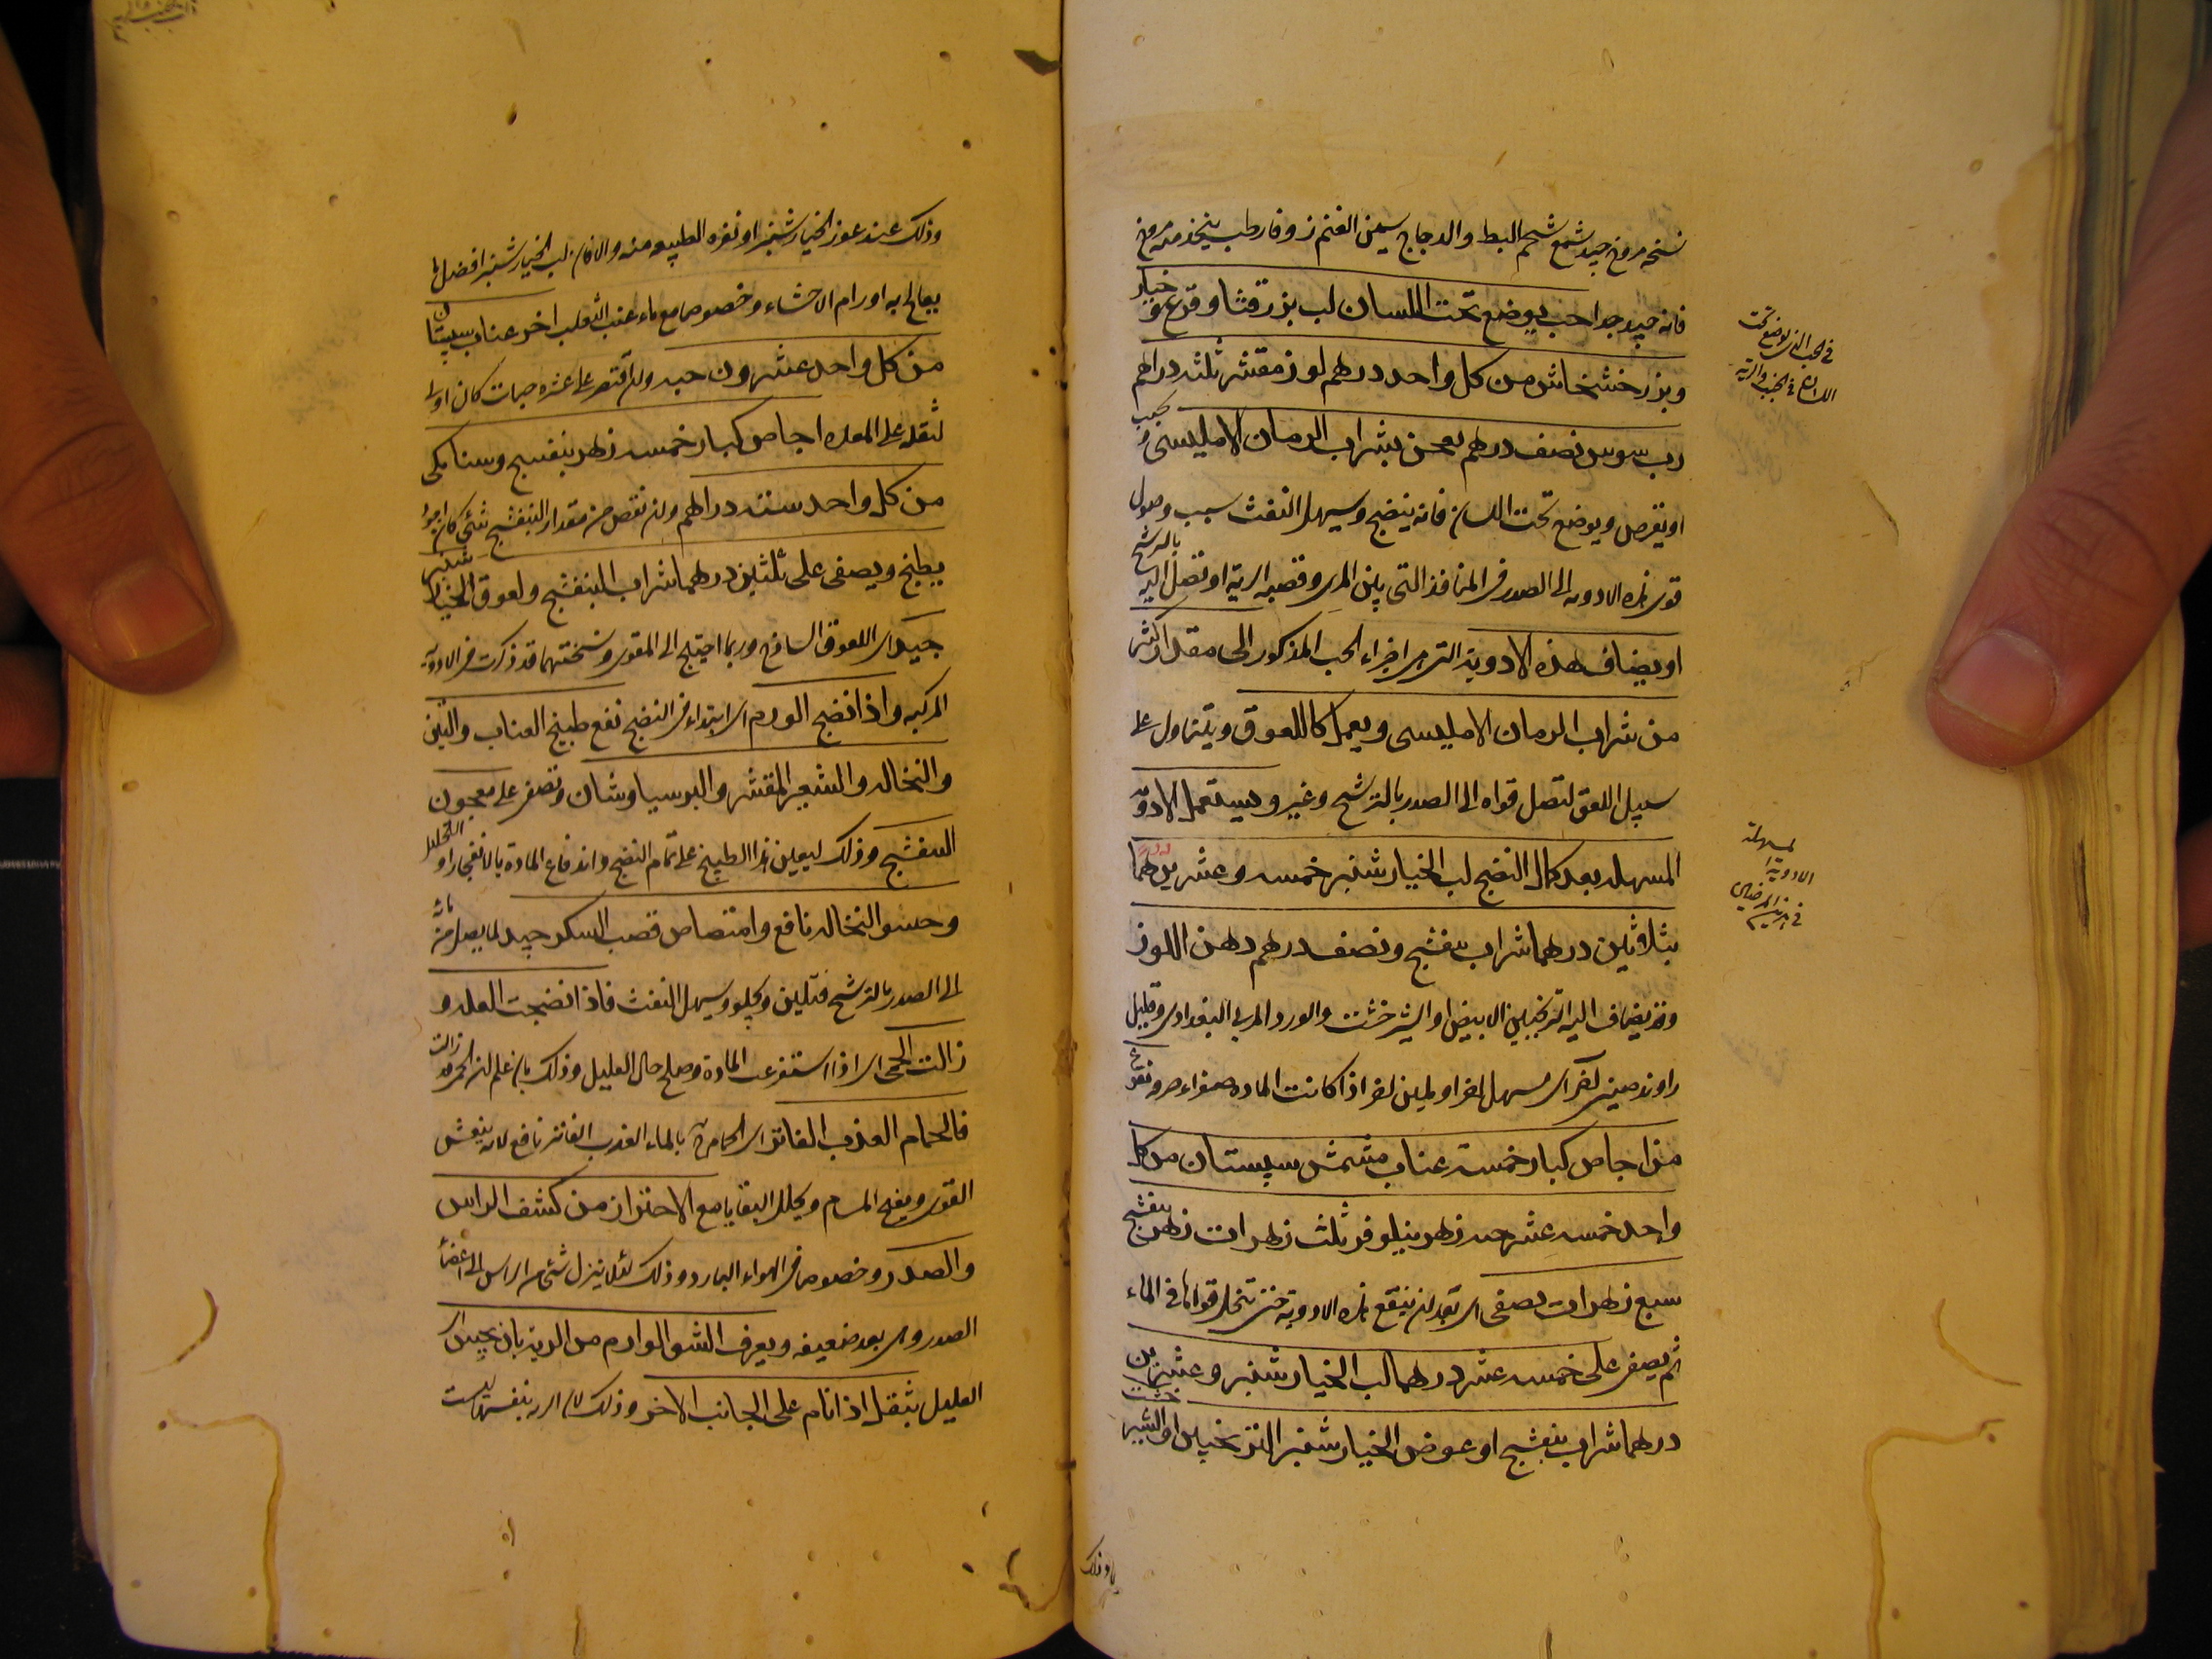 نسخه مروخ جيد شمع شحم البط والدجاج سمن الغنم زوفا رطب يتخذ منه مروخ
فانه جيد جدا حب يوضع تحت اللسان لب بزر قثا وقرع وخيار
وبزر خشخاش من كل واحد درهم لوز مقشر ثلثه دراهم
رب سوس نصف درهم يعجن بشراب الرمان الامليسى ويحبب
او يقرص ويوضع تحت اللسان فانه ينضج ويسهل النفث بسبب وصول
قوى هذه الادويه الى الصدر فى المنافذ التى بين المرى وقصبه الريه او تصل اليه بالترشح
او يضاف هذه الادوية التى هى اجزاء الحب المذكور الى مقدار اكثر
من شراب الرمان الامليسى ويعمل كاللعوق ويتناول على
سبيل اللعق لتصل قواه الى الصدر بالترشح وغيره ويستعمل الادوية
المسهله بعد كمال النضج لب الخيار شنبر خمسه وعشرين درهما
بثلاثين درهما شراب بنفشج ونصف درهم دهن اللوز
وقد يضاف اليه الترنجبين الابيض او الشيرخشت والورد المربى البغدادى وقليل
راوند صينى اخر اى مسهل اخر او ملين اخر اذا كانت الماده صفراء صرفه نقوع
من اجاص كبار خمسة عناب مشمش سپستان من كل
واحد خمسه عشر حبه زهر نيلوفر ثلث زهرات زهر بنفشج
سبع زهرات يصفى اى بعد ان ينقع هذه الادوية حتى تتحلل قواها فى الماء
ثم يصفى على خمسه عشر درهما لب الخيار شنبر وعشرين
درهما شراب بنفشج او عوض الخيار شنبر الترنجبين او الشيرخشت
فى الحب الذى يوضع تحت
اللسان فى ذات الجنب وذات الريه
المسهلة
الادوية
فى هذين المرضين
وذلك
وذلك عند عوز الخيار شنبر او نفره الطبيعه منه والا فان لب الخيار شنبر افضل ما
يعالج به اورام الاحشاء وخصوصا مع ماء عنب الثعلب اخر عناب سپستان
من كل واحد عشرون حبه وان اقتصر على عشره حبات كان اولى
لثقله على المعده اجاص كبار خمسه زهر بنفسج وسنا مكى
من كل واحد سته دراهم وان نقص من مقدار البنفشج شئ كان اجود
يطبخ ويصفى على ثلثين درهما شراب البنفشج ولعوق الخيار شنبر
جيد اى اللعوق الساذج وربما احتيج الى المقوى ونسختهما قد ذكرت فى الادوية
المركبه واذا نضج الورم اى ابتداء فى النضج نفع طبيخ العناب والتين
والنخاله والشعير المقشر والبرسياوشان وتصفى على معجون
البنفشج وذلك ليعين هذا الطبيخ على تمام النضج واندفاع المادة بالانفجار او التحلل
وحسو النخاله نافع وامتصاص قصب السكر جيد لما يصل من مائه
الى الصدر بالترشح فتلين ويجلو ويسهل النفث فاذا نضجت العله و
زالت الحمى اى اذا استفرغت المادة وصلح حال العليل وذلك بان علم ان الحمى قد زالت
فالحمام العذب الفاتر اى الحمام بالماء العذب الفاتر نافع لانه ينعش
القوى ويفتح المسام ويحلل البقايا مع الاحتراز من كشف الراس
والصدر وخصوصا فى الهواء البارد وذلك لئلا ينزل شئ من الراس الى اعضاء
الصدر وهى بعد ضعيفه ويعرف الشق الوارم من الريه بان يحس
العليل بثقل اذا نام على الجانب الاخر وذلك لان الريه بنفسها ليست